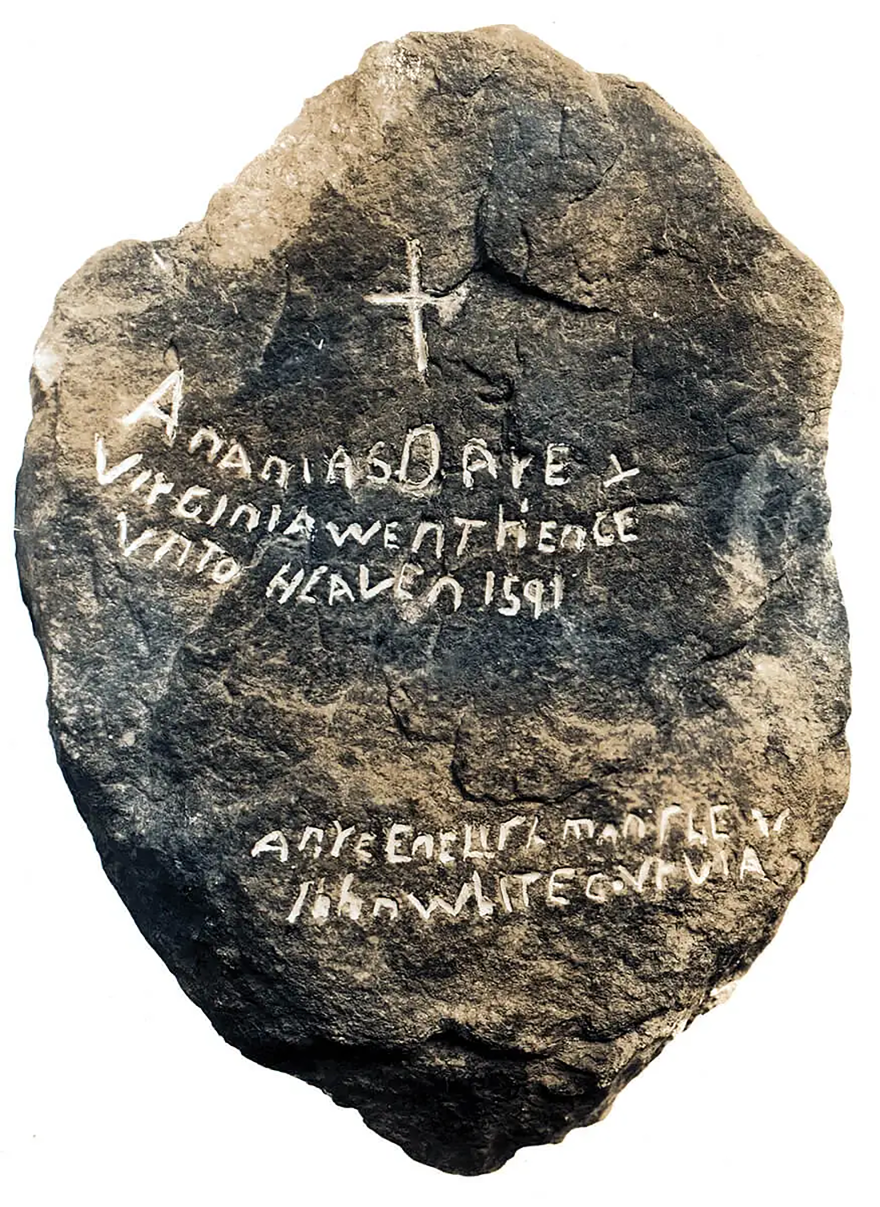 AnAnIAS DArE &
VIrGInIA WEnT HEnCE
VnTO HEAVEn 1591
AnYE EnGLISh mAn ShEW
Iohn WhITE GoVr VIA